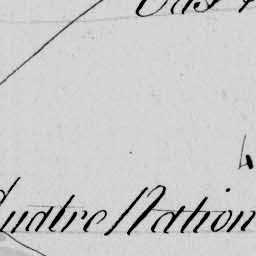 4
Quatre Nation